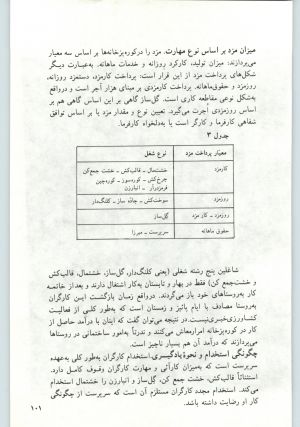 میزان مزد بر اساس نوع مهارت. مزد را درکوره‌پزخانه‌ها بر اساس سه معیار
می‌پردازند: میزان تولید، کارکرد روزانه و خدمات ماهانه. به‌عبارت دیگر
شکل‌های پرداخت مزد از این قرار است: پرداخت کارمزد، دستمزد روزانه،
روزمزد و حقوق‌ماهانه. پرداخت کارمزدی بر مبنای هزار آجر است و درواقع
به‌شکل نوعی مقاطعه کاری است. گل‌ساز گاهی بر این اساس گاهی هم بر
اساس روزمزدی اجرت می‌گیرد. تعیین نوع و مقدار مزد یا بر اساس توافق
شفاهی کارفرما و کارگر است یا به‌دلخواه کارفرما.
جدول ۳
معیار پرداخت مزد
نوع شغل
کارمزد
خشتمال - قالب‌کش - خشت جمع‌کن
چرخ‌کش - کوره‌سوز - کوره‌چین
قرمزدرآر - انبارزن
روزمزد
سوخت‌کش - جاده ساز - کلنگ‌دار
روزمزد - کار مزد
گل‌ساز
حقوق ماهانه
سرپرست - میرزا
شاغلین پنج رشته شغلی (کلنگ‌دار، گل‌ساز، خشتمال، قالب‌کش
و خشت‌جمع کن) فقط در بهار و تابستان به‌کار اشتغال دارند و بعداز خاتمه
کار به‌روستاهای خود باز می‌گردند. درواقع زمان بازگشت این کارگران
به‌روستا مصادف با ایام پائیز و زمستان است که به‌طور کلی از فعالیت
کشاورزی‌خبری‌نیست. در نتیجه می‌توان گفت که اینان با درآمد حاصل از
کار در کوره‌پزخانه امرارمعاش می‌کنند و ندرتاً به‌امور ساختمانی در روستاها
می‌پردازند که درآمد آن هم بسیار ناچیز است.
چگونگی استخدام و نحوهٔ یادگیری. استخدام کارگران به‌طور کلی به‌عهده
سرپرست است که به‌میزان کارآئی و مهارت کارگران وقوف کامل دارد.
استثنائاً قالب‌کش، خشت جمع کن، گل‌ساز و انبارزن را خشتمال استخدام
می‌کند. استخدام مجدد کارگران مستلزم آن است که سرپرست از چگونگی
کار او رضایت داشته باشد.
۱۰۱